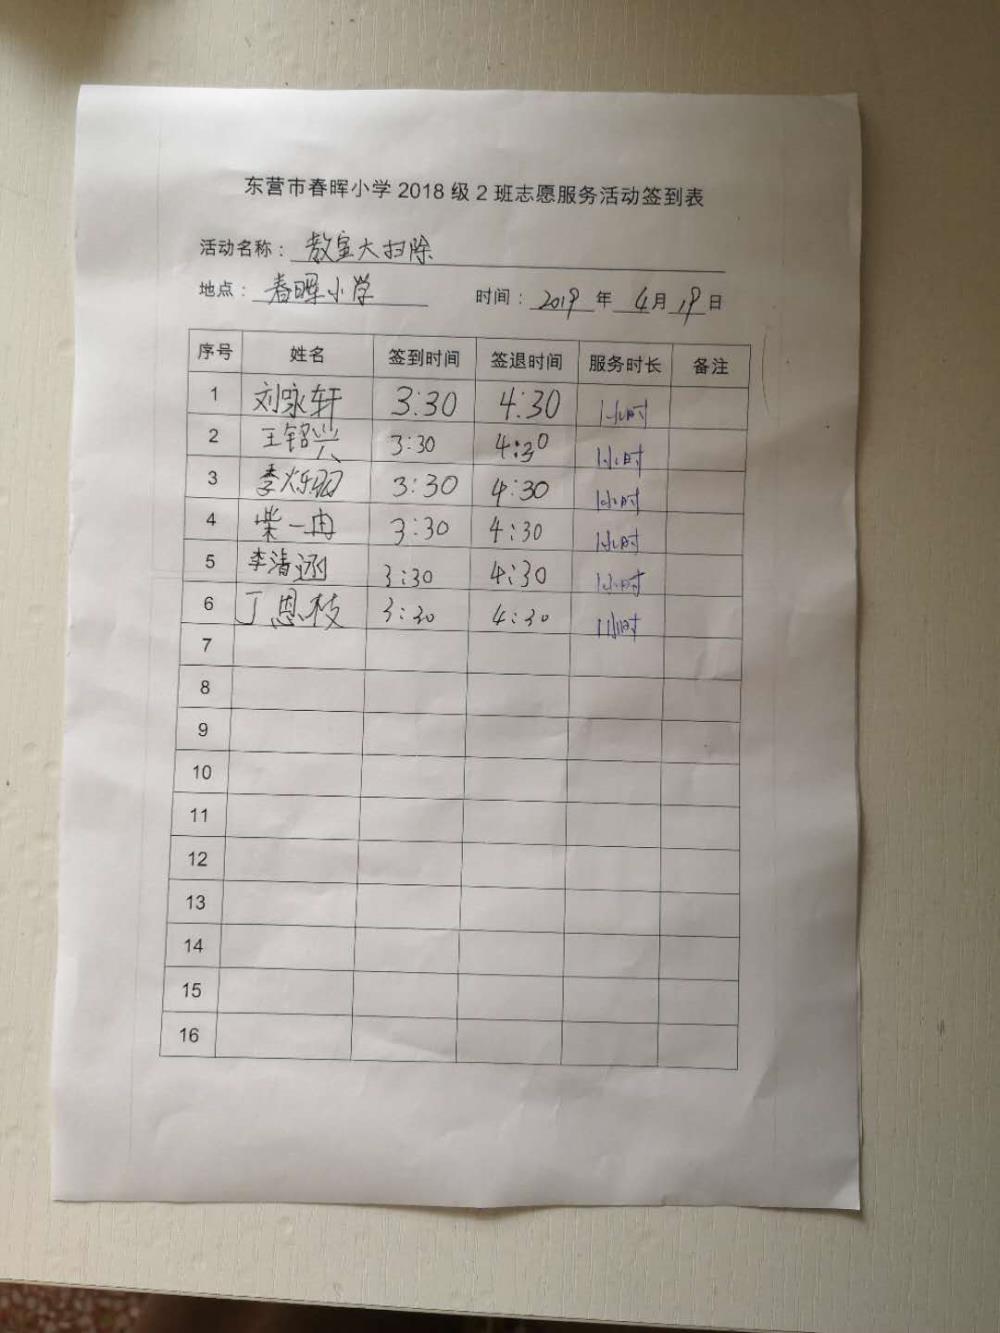 东营市春晖小学2018级2班志愿服务活动签到表
活动名称：教室大扫除
地点：春晖小学 时间：2019年4月19日
序号 姓名 签到时间 签退时间 服务时长 备注
1 刘咏轩 3:30 4:30 1小时
2 王铭兴 3:30 4:30 1小时
3 李烁 3:30 4:30 1小时
4 柴一冉 3:30 4:30 1小时
5 李清涵 3:30 4:30 1小时
6 丁恩枝 3:30 4:30 1小时
7
8
9
10
11
12
13
14
15
16